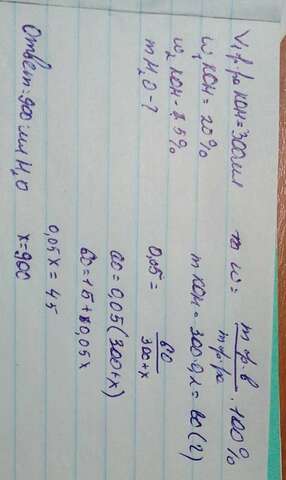 V₁ р-ра KOH = 300мл
ω₁ KOH = 20%
ω₂ KOH - 5%
m H₂O - ?
ω = m р.в / m р-ра · 100%
m KOH = 300·0,2 = 60 (г)
0,05 = 60 / 300+x
60 = 0,05 (300+x)
60 = 15 + 0,05x
0,05x = 45
x = 900
Ответ: 900 мл H₂O